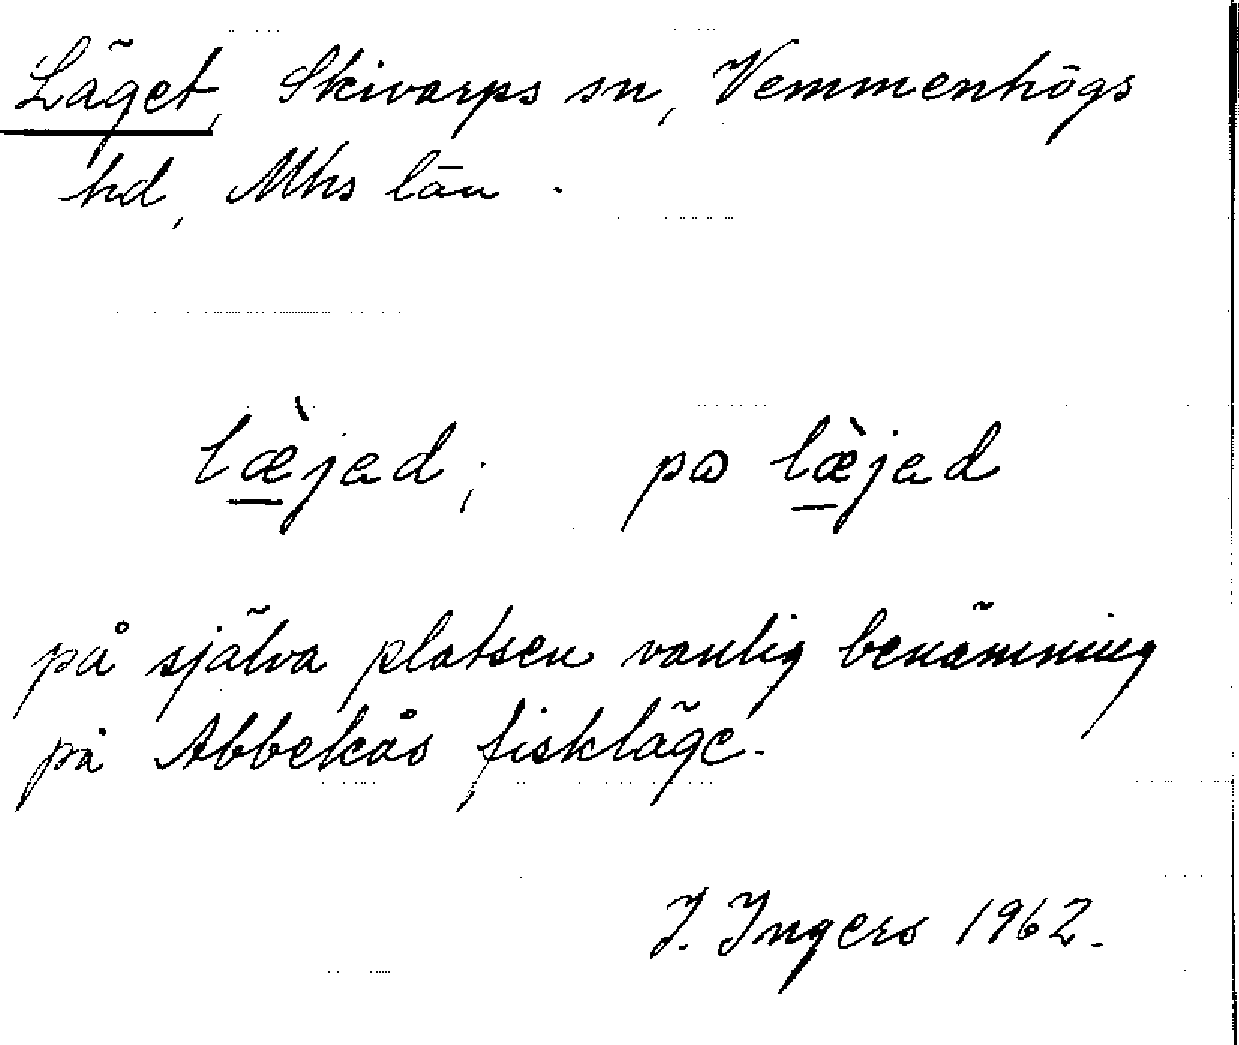 Läget, Skivarps sn, Vemmenhögs
hd, Mhs län.
læ̀jad; pɷ læ̀jad
på själva platsen vanlig benämning
på Abbekås fiskläge.
I. Ingers 1962.